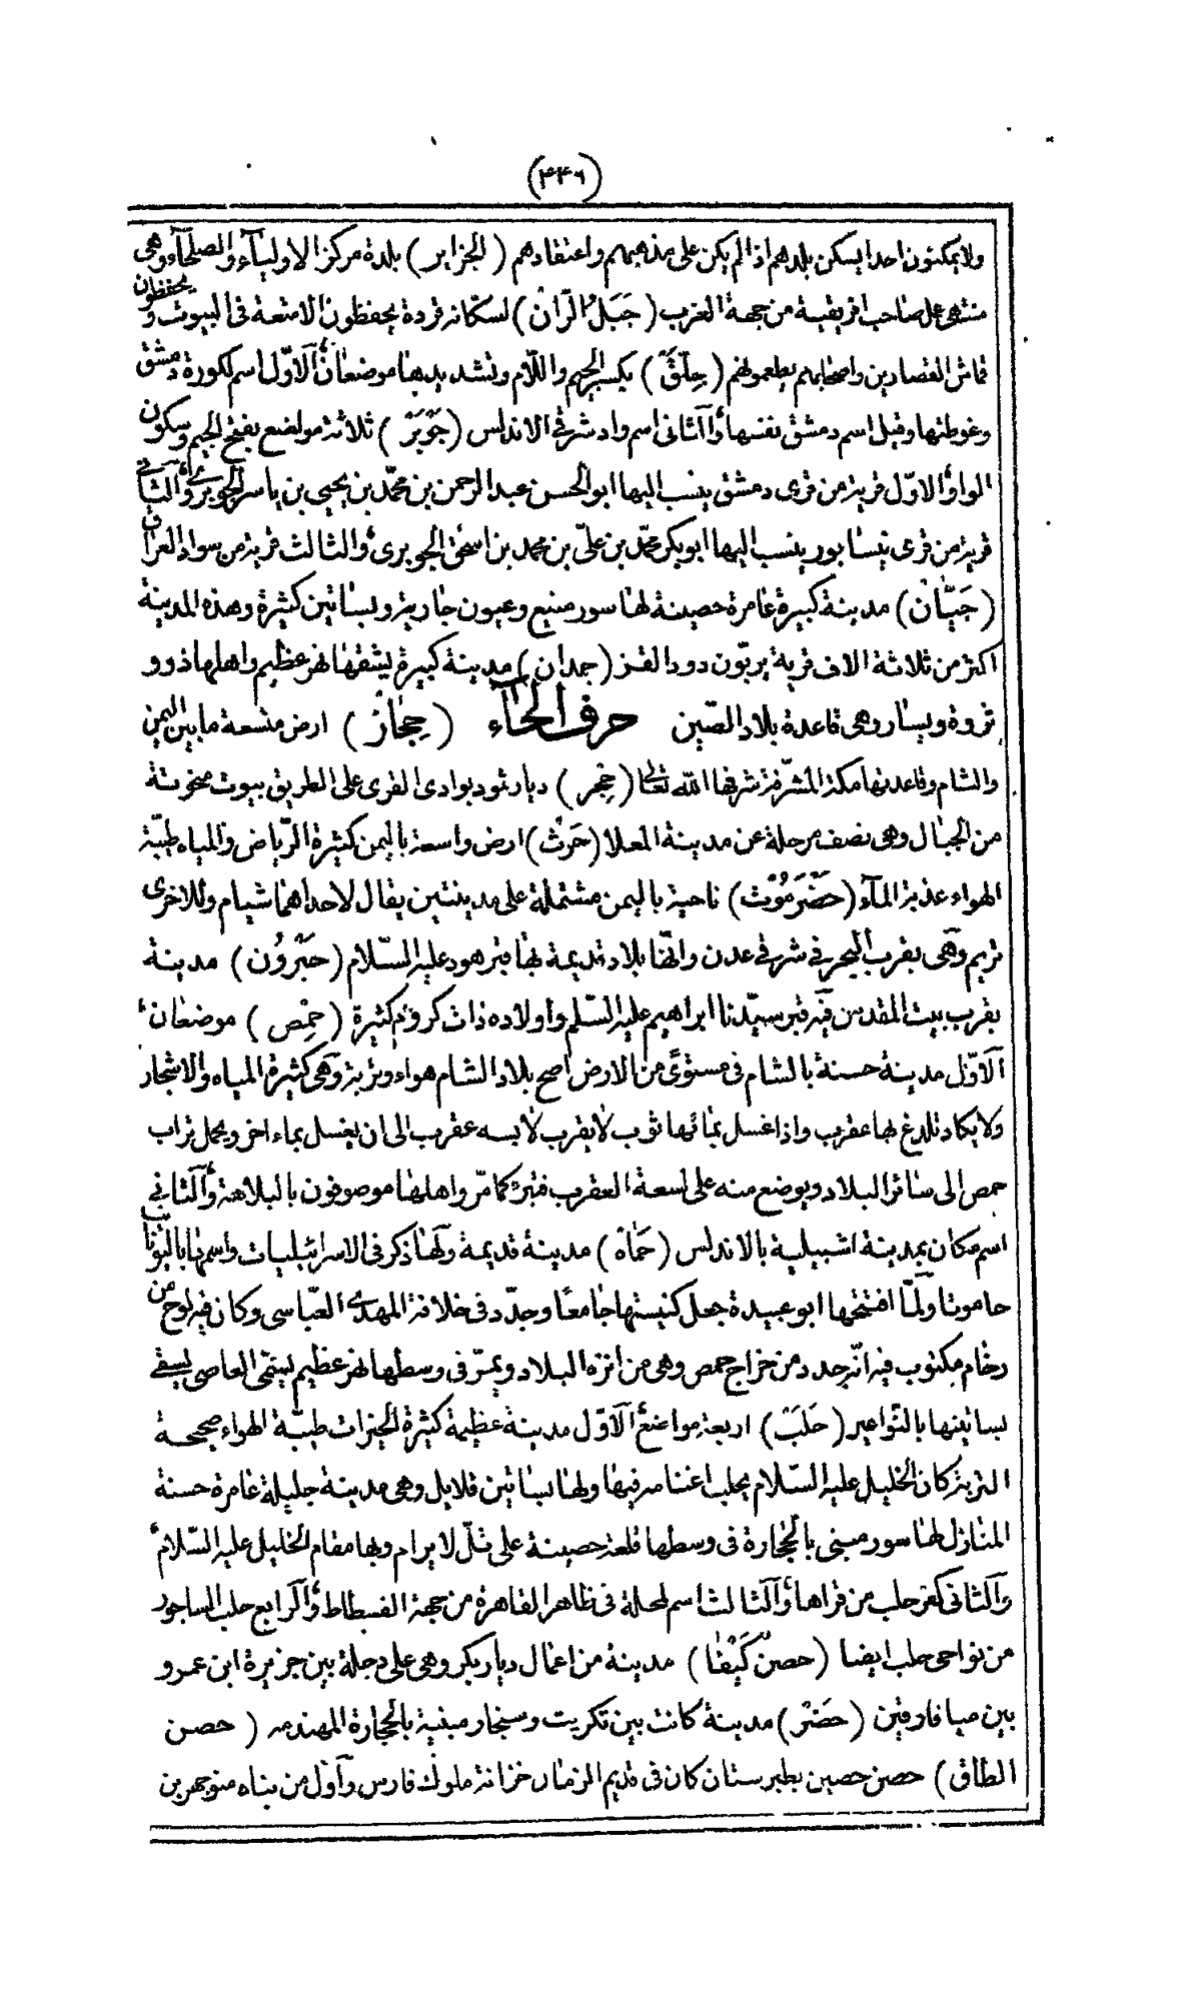 (٤٤٦)
ولا يمكنون احدا يسكن بلدهم اذا لم يكن على مذهبهم واعتقادهم (الجزاير) بلدة مركز الاوليآء والصلحآء وهى
منتهى عمل صاحب افريقية من جهة الغرب (جَبَلُ الرّان) لسكّانه قردة يحفظون الامتعة فى البيوت و يحفظون
قماش القصارين واصحابهم يطعمونهم (جِلّقَ) بكسر الجيم واللّام وتشديدها موضعان الاوّل اسم لكورة دمشق
وغوطتها وقيل اسم دمشق نفسها وآلثانى اسم واد شرقى الاندلس (جَوْبَرْ) ثلاثة مواضع بفتح الجيم وسكون
الواو الاوّل قرية من قرى دمشق ينسب اليها ابو الحسن عبد الرحمن بن محمّد بن يحيى بن ياسر الجوبرى وآلثانى
قرية من قرى نيسابور ينسب اليها ابو بكر محمّد بن علىّ بن محمد بن اسحق الجوبرى والثالث قرية من سواد العراق
(جَيّانْ) مدينة كبيرة عامرة حصينة لها سور منيع وعيون جارية وبساتين كثيرة وهذه المدينة
اكثر من ثلاثة الاف قرية يربّون دود القز (جمدان) مدينة كبيرة يشقها نهر عظيم واهلها ذوو
ثروة ويسار وهى قاعدة بلاد الصّين حرف الحآء (حِجازْ) ارض متسعة ما بين اليمن
والشام وقاعدتها مكة المشرّفة شرفها اللّه تعالى (حِجر) ديار ثمود بوادى القرى على الطريق بيوت منحوتة
من الجبال وهى نصف مرحلة عن مدينة المعلا (حَرثْ) ارض واسعة باليمن كثيرة الرّياض والمياه طيبّة
الهواء عذبة المآء (حَضْرَمُوْت) ناحية باليمن مشتملة على مدينتين يقال لاحداهما شيام وللاخرى
تريم وهى بقرب البحر فى شرقى عدن وانّها بلاد قديمة بها قبر هود عليه السّلام (حَبْرُون) مدينة
بقرب بيت المقدس فيه قبر سيّدنا ابراهيم عليه السّلم واولاده ذات كروم كثيرة (حِمْص) موضعان
الاوّل مدينة حسنة بالشام فى مستوًى من الارض اصح بلاد الشام هواء وتربة وهى كثيرة المياه والاشجار
ولا يكاد تلدغ بها عقرب واذا غسل بمائها ثوب لا يقرب لابسه عقرب الى ان يغسل بماء اخر ويحمل تراب
حمص الى سائر البلاد ويوضع منه على لسعة العقرب فتبرء كما مرّ واهلها موصوفون بالبلاهة وآلثانى
اسم مكان بمدينة اشبيلية بالاندلس (حَمَاة) مدينة قديمة ولها ذكر فى الاسرائيليات واسمها باليونانية
حاموتا ولمّا افتتحها ابو عبيدة جعل كنيستها جامعًا وجدّد فى خلافة المهدى العبّاسى وكان فيه لوح من
رخام مكتوب فيه انّه جدد من خراج حمص وهى من انزه البلاد ويمرّ فى وسطها نهر عظيم يسمّى العاصى يسقى
بساتينها بالنّواعير (حَلَبَ) اربعة مواضع الاوّل مدينة عظيمة كثيرة الخيرات طيبّة الهواء صحيحة
التربة كان الخليل عليه السّلام يحلب اغنامه فيها ولها بساتين قلايل وهى مدينة جليلة عامرة حسنة
المنازل لها سور مبنى بالحجارة فى وسطها قلعة حصينة على تلّ لا يرام وبها مقام الخليل عليه السّلام
وآلثانى كفر حلب من قراها وآلثالث اسم لمحلة فى ظاهر القاهرة من جهة الفسطاط وآلرابع حلب الساجور
من نواحى حلب ايضا (حصن كَيْفا) مدينة من اعمال ديار بكر وهى على دجلة بين جزيرة ابن عمر و
بين ميافارقين (حَضَرْ) مدينة كانت بين تكريت وسنجار مبنية بالحجارة المهندمه (حصن
الطاق) حصن حصين بطبرستان كان فى قديم الزمان خزانة ملوك فارس وآوّل من بناه منوجهر بن